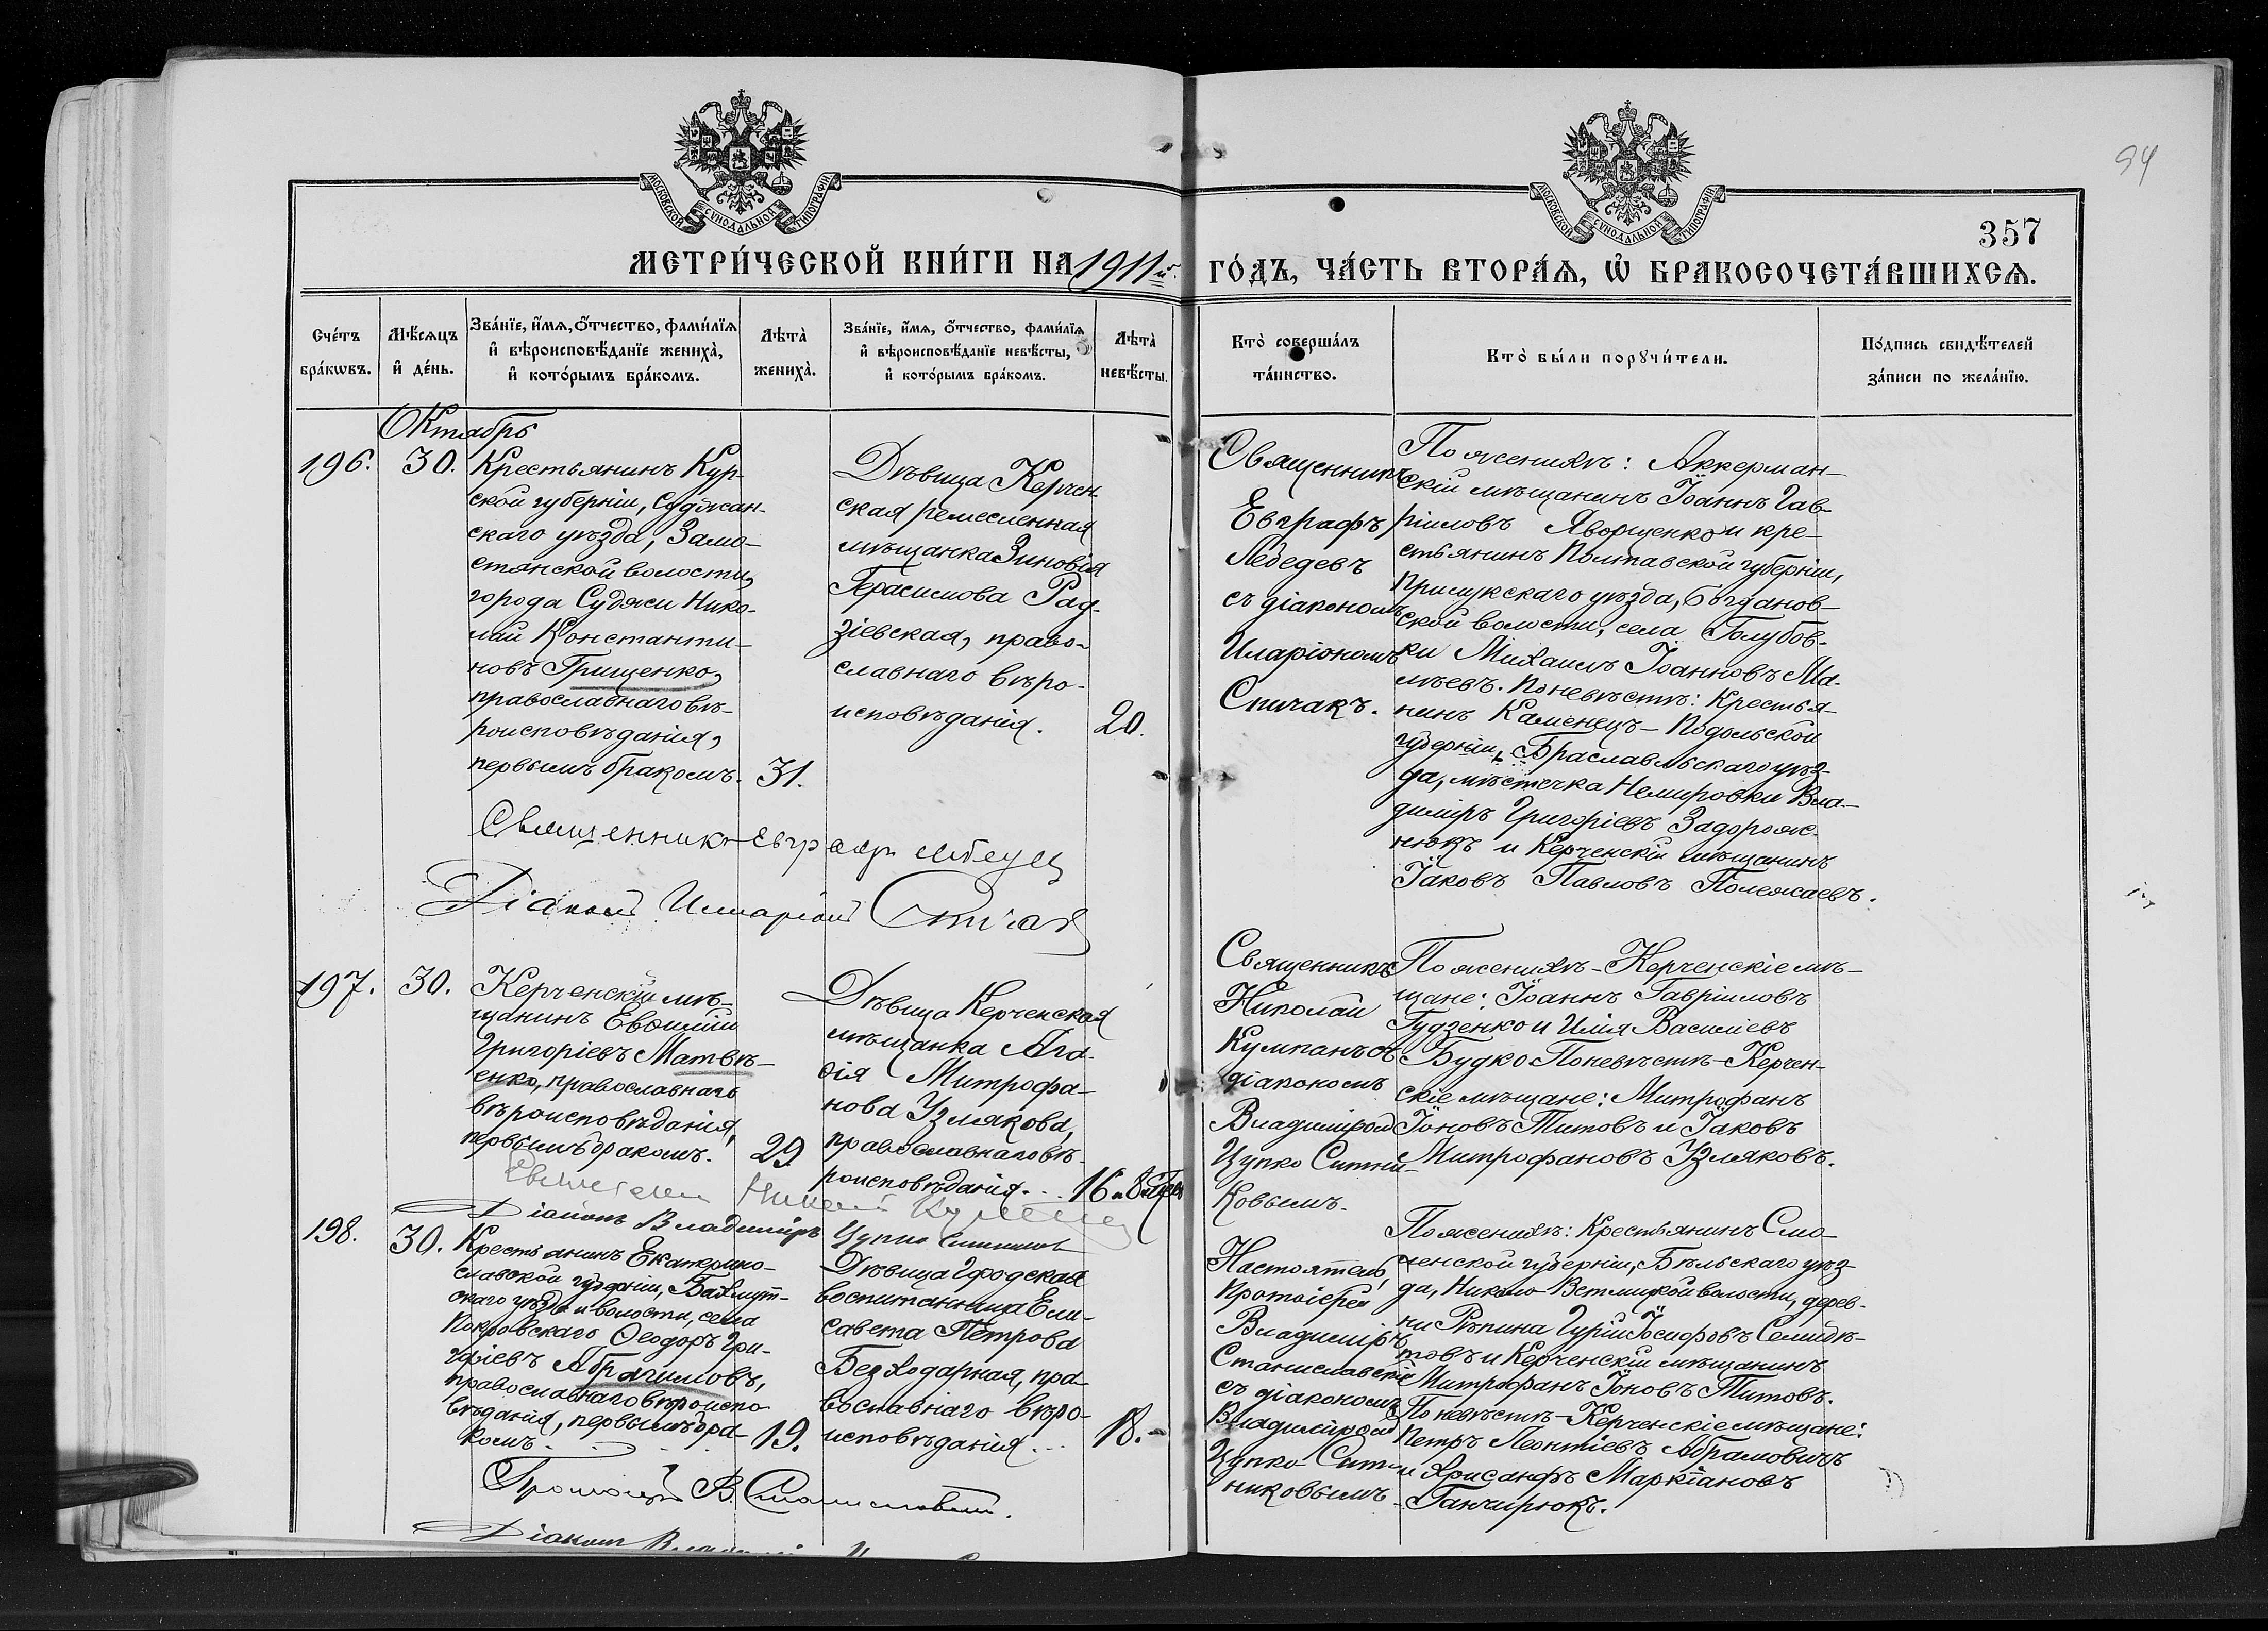 94
МОСКОВСКОЙ СѴНОДАЛЬНОЙ ТИПОГРАФІИ
МОСКОВСКОЙ СѴНОДАЛЬНОЙ ТИПОГРАФІИ
357
МЕТРИ́ЧЕСКОЙ КНИ́ГИ НА 1911й.
ГО́ДЪ, ЧА́СТЬ ВТОРА́Ѧ, Ѡ҆ БРАКОСОЧЕТА́ВШИХСѦ.
Сче́тъ
бра́кѡвъ.
Мѣ́сѧцъ
и҆ де́нь.
Зва́нїе, и҆́мѧ, ѻ҆́тчество, фами́лїѧ
и҆ вѣроисповѣ́данїе жениха̀,
и҆ кото́рымъ бра́комъ.
Лѣта̀
жениха̀.
Зва́нїе, и҆́мѧ, ѻ҆́тчество, фами́лїѧ
и҆ вѣроисповѣ́данїе невѣ́сты,
и҆ кото́рымъ бра́комъ.
Лѣта̀
невѣ́сты.
Кто̀ соверша́лъ
та́инство.
Кто̀ бы́ли порꙋчи́тели.
По́дпись свидѣ́телей
за́писи по жела́нїю.
Октябрь
196.
30.
Крестьянинъ Кур-
ской губерніи, Суджан-
скаго уѣзда, Замо-
стянской волости,
города Суджи Нико-
лай Константи-
новъ Грищенко,
православнаго вѣ-
роисповѣданія,
первымъ бракомъ.
31.
Дѣвица Керчен-
ская ремесленная
мѣщанка Зиновія
Герасимова Рад-
зіевская, право-
славнаго вѣро-
исповѣданія.
20.
Священникъ
Евграфъ
Лебедевъ
съ діакономъ
Иларіономъ
Спичакъ.
По женихѣ: Аккерман-
скій мѣщанинъ Іоаннъ Гав-
ріиловъ Яворщенко и кре-
стьянинъ Полтавской губерніи,
Прилукскаго уѣзда, Богданов-
ской волости, села Голубов-
ки Михаилъ Іоанновъ Ма-
лѣевъ. По невѣстѣ: Крестья-
нинъ Каменецъ-Подольской
губерніи, Браславльскаго уѣз-
да, мѣстечка Немировки Вла-
диміръ Григоріевъ Задорож-
нюкъ и Керченскій мѣщанинъ
Іаковъ Павловъ Полежаевъ.
Священникъ Евграфъ Лебедевъ
Діаконъ Иларіонъ Спичакъ
197.
30.
Керченскій мѣ-
щанинъ Евѳимій
Григоріевъ Матвѣ-
енко, православнаго
вѣроисповѣданія,
первымъ бракомъ.
29
Дѣвица Керченская
мѣщанка Ага-
ѳія Митрофа-
нова Узлякова,
православнаго вѣ-
роисповѣданія...
16 и 8 мѣс.
Священникъ
Николай
Кумпанъ съ
діакономъ
Владиміромъ
Цупко Ситни-
ковымъ.
По женихѣ - Керченскіе мѣ-
щане: Іоаннъ Гавріиловъ
Гудзенко и Илія Василіевъ
Будко По невѣстѣ - Керчен-
скіе мѣщане: Митрофанъ
Іоновъ Титовъ и Іаковъ
Митрофановъ Узляковъ.
Священникъ Николай Кумпанъ
Діаконъ Владиміръ Цупко Ситниковъ
198.
30.
Крестьянинъ Екатерино-
славской губерніи, Бахмут-
скаго уѣзда и волости, села
Покровскаго Ѳеодоръ Гри-
горіевъ Абрагимовъ,
православнаго вѣроиспо-
вѣданія, первымъ бра-
комъ.
19.
Дѣвица Городская
воспитанница Ели-
савета Петрова
Безходарная, пра-
вославнаго вѣро-
исповѣданія...
18.
Настоятель,
Протоіерей
Владиміръ
Станиславскій
съ діакономъ
Владиміромъ
Цупко Сит-
никовымъ
По женихѣ: Крестьянинъ Смо-
ленской губерніи, Бѣльскаго уѣз-
да, Николо-Ветлицкой волости, дерев-
ни Рѣпина Гурій Іосифовъ Селидѣ-
товъ и Керченскій мѣщанинъ
Митрофанъ Іоновъ Титовъ.
По невѣстѣ - Керченскіе мѣщане:
Петръ Леонтіевъ Абрамовичъ
и Хрисанфъ Маркіановъ
Ганчирюкъ.
Протоіерей В. Станиславскій.
Діаконъ